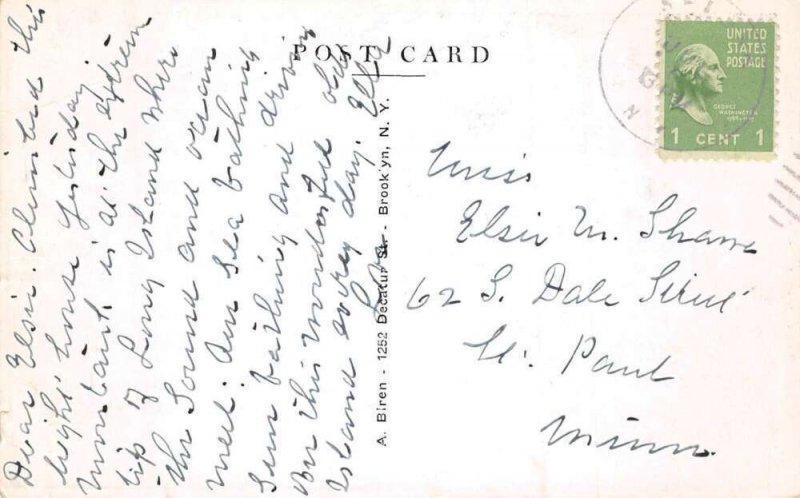 POST CARD
Dear Elsie. Climbed this
light house yesterday
Montauk is at the extrem
tip of Long Island where
the Sound and ocean
meet. Am sea bathing
Sun bathing and driving
on this wonderful old
Island every day.
Love Ella
A. Biren - 1252 Decatur St. - Brook'yn, N. Y.
UNITED
STATES
POSTAGE
GEORGE
WASHINGTON
1 CENT 1
Miss
Elsie M. Shawe
62 S. Dale Street
St. Paul
Minn.